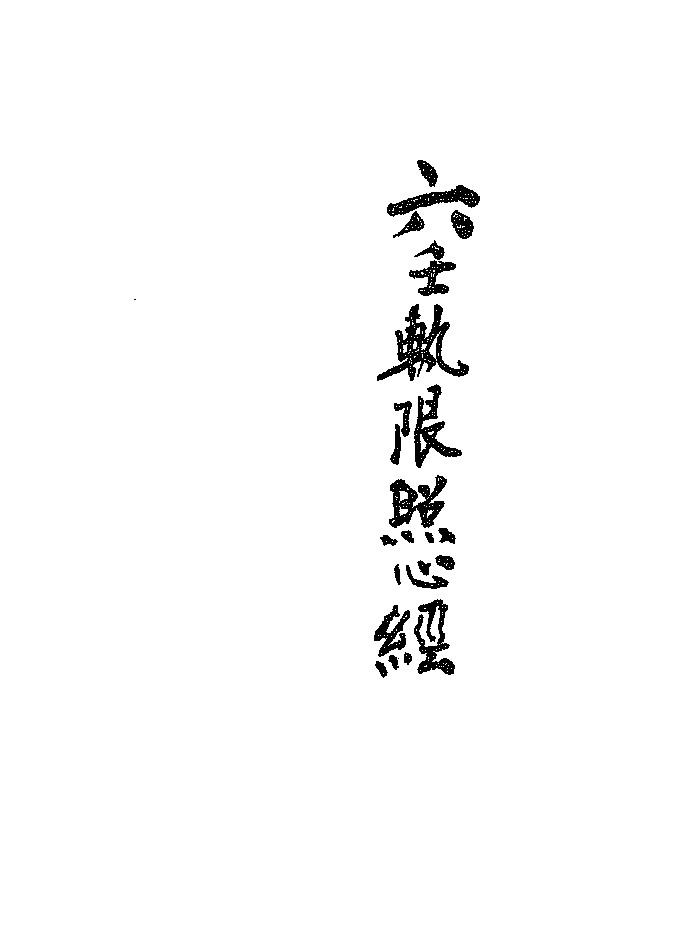 六壬軌限照心經